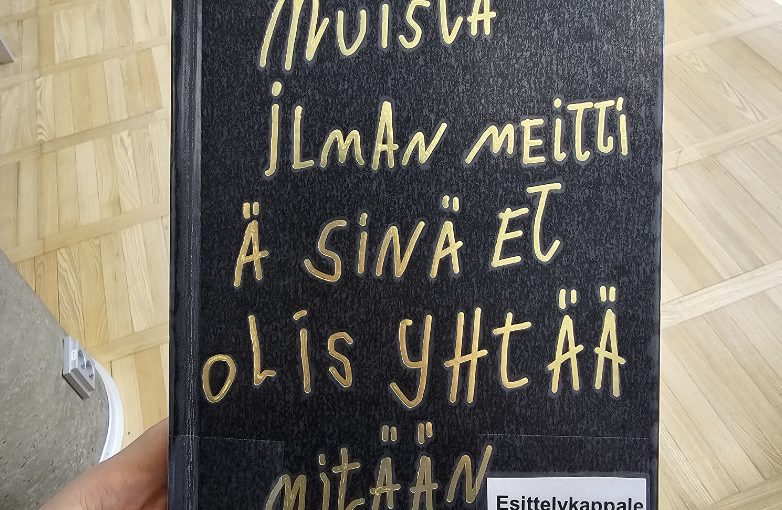 MUISTA
iLMAN MEiTTi
Ä SiNÄ ET
OLiS YHtÄÄ
mitÄÄN
Esittelykappale